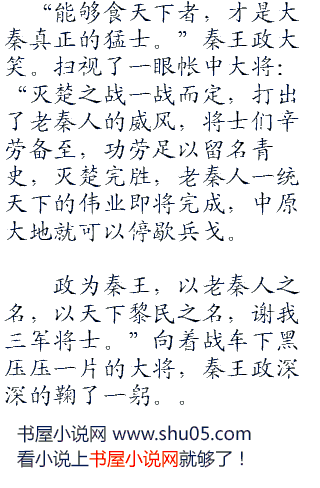 “能够食天下者，才是大
秦真正的猛士。”秦王政大
笑。扫视了一眼帐中大将：
“灭楚之战一战而定，打出
了老秦人的威风，将士们辛
劳备至，功劳足以留名青
史，灭楚完胜，老秦人一统
天下的伟业即将完成，中原
大地就可以停歇兵戈。
政为秦王，以老秦人之
名，以天下黎民之名，谢我
三军将士。”向着战车下黑
压压一片的大将，秦王政深
深的鞠了一躬。。
书屋小说网 www.shu05.com
看小说上书屋小说网就够了！